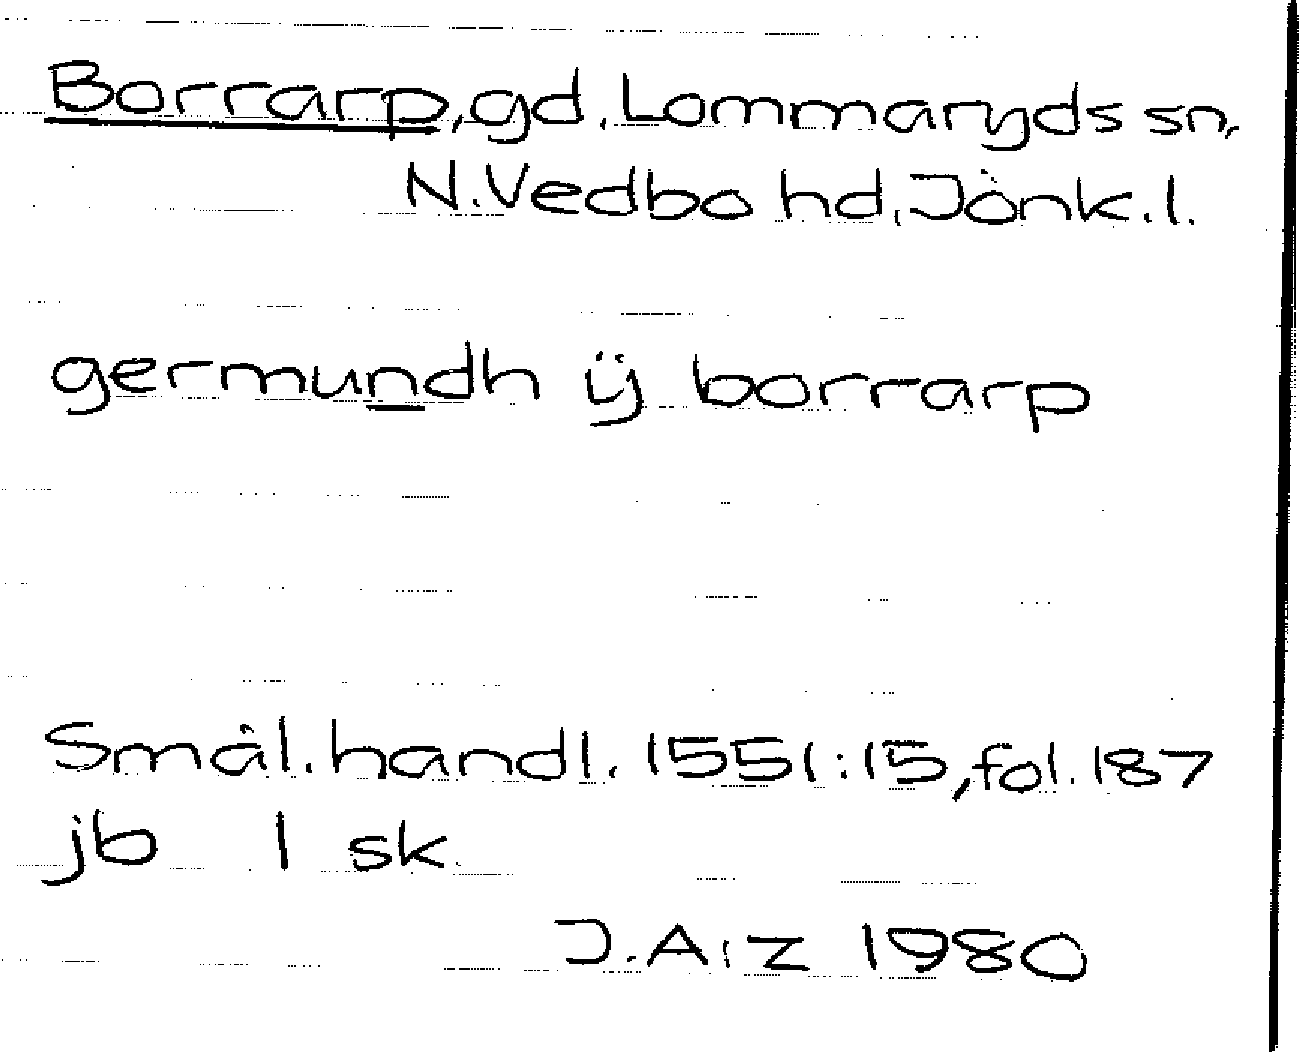 Borrarp, gd, Lommaryds sn,
N.Vedbo hd, Jönk.l.
germundh ij borrarp
Smål. handl. 1551:15, fol. 187
jb 1 sk.
J.A:z 1980